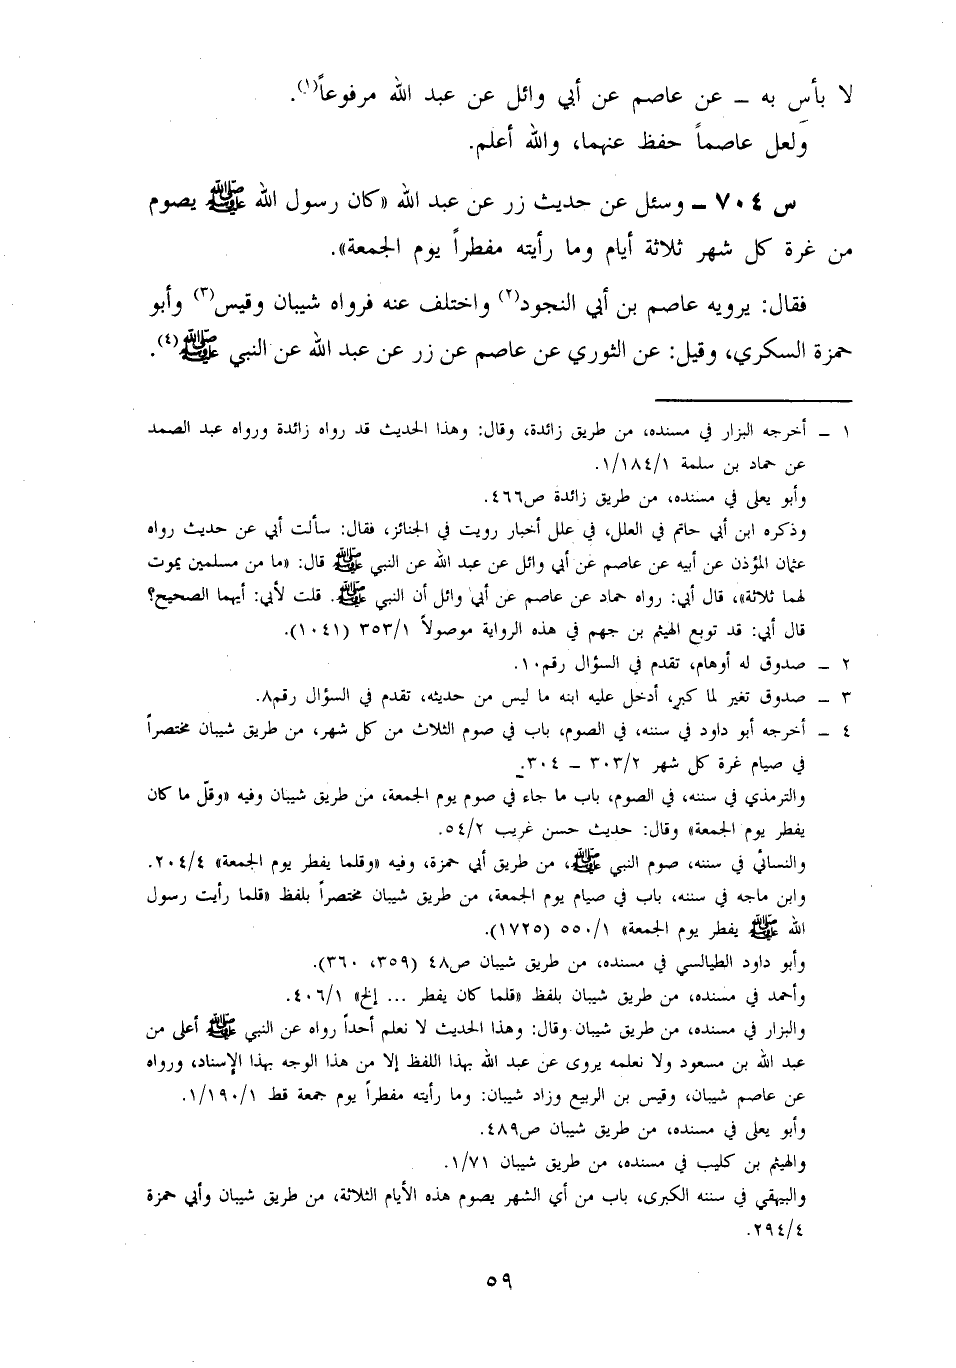 لا بأس به ــ عن عاصم عن أبي وائل عن عبد الله مرفوعاً(١).
ولعل عاصماً حفظ عنهما، والله أعلم.
س ٧٠٤ ــ وسئل عن حديث زر عن عبد الله «كان رسول الله ﷺ يصوم
من غرة كل شهر ثلاثة أيام وما رأيته مفطراً يوم الجمعة».
فقال: يرويه عاصم بن أبي النجود(٢) واختلف عنه فرواه شيبان وقيس(٣) وأبو
حمزة السكري، وقيل: عن الثوري عن عاصم عن زر عن عبد الله عن النبي ﷺ(٤).
١ ــ أخرجه البزار في مسنده، من طريق زائدة، وقال: وهذا الحديث قد رواه زائدة ورواه عبد الصمد
عن حماد بن سلمة ١/١٨٤/١.
وأبو يعلى في مسنده، من طريق زائدة ص٤٦٦.
وذكره ابن أبي حاتم في العلل، في علل أخبار رويت في الجنائز، فقال: سألت أبي عن حديث رواه
عثمان المؤذن عن أبيه عن عاصم عن أبي وائل عن عبد الله عن النبي ﷺ قال: «ما من مسلمين يموت
لهما ثلاثة»، قال أبي: رواه حماد عن عاصم عن أبي وائل أن النبي ﷺ. قلت لأبي: أيهما الصحيح؟
قال أبي: قد توبع الهيثم بن جهم في هذه الرواية موصولاً ٣٥٣/١ (١٠٤١).
٢ ــ صدوق له أوهام، تقدم في السؤال رقم١٠.
٣ ــ صدوق تغير لما كبر، أدخل عليه ابنه ما ليس من حديثه، تقدم في السؤال رقم٨.
٤ ــ أخرجه أبو داود في سننه، في الصوم، باب في صوم الثلاث من كل شهر، من طريق شيبان مختصراً
في صيام غرة كل شهر ٣٠٣/٢ ــ ٣٠٤.
والترمذي في سننه، في الصوم، باب ما جاء في صوم يوم الجمعة، من طريق شيبان وفيه «وقلّ ما كان
يفطر يوم الجمعة» وقال: حديث حسن غريب ٥٤/٢.
والنسائي في سننه، صوم النبي ﷺ، من طريق أبي حمزة، وفيه «وقلما يفطر يوم الجمعة» ٢٠٤/٤.
وابن ماجه في سننه، باب في صيام يوم الجمعة، من طريق شيبان مختصراً بلفظ «قلما رأيت رسول
الله ﷺ يفطر يوم الجمعة» ٥٥٠/١ (١٧٢٥).
وأبو داود الطيالسي في مسنده، من طريق شيبان ص٤٨ (٣٥٩، ٣٦٠).
وأحمد في مسنده، من طريق شيبان بلفظ «قلما كان يفطر ... إلخ» ٤٠٦/١.
والبزار في مسنده، من طريق شيبان وقال: وهذا الحديث لا نعلم أحداً رواه عن النبي ﷺ أعلى من
عبد الله بن مسعود ولا نعلمه يروى عن عبد الله بهذا اللفظ إلا من هذا الوجه بهذا الإسناد، ورواه
عن عاصم شيبان، وقيس بن الربيع وزاد شيبان: وما رأيته مفطراً يوم جمعة قط ١/١٩٠/١.
وأبو يعلى في مسنده، من طريق شيبان ص٤٨٩.
والهيثم بن كليب في مسنده، من طريق شيبان ١/٧١.
والبيهقي في سننه الكبرى، باب من أي الشهر يصوم هذه الأيام الثلاثة، من طريق شيبان وأبي حمزة
٢٩٤/٤.
٥٩